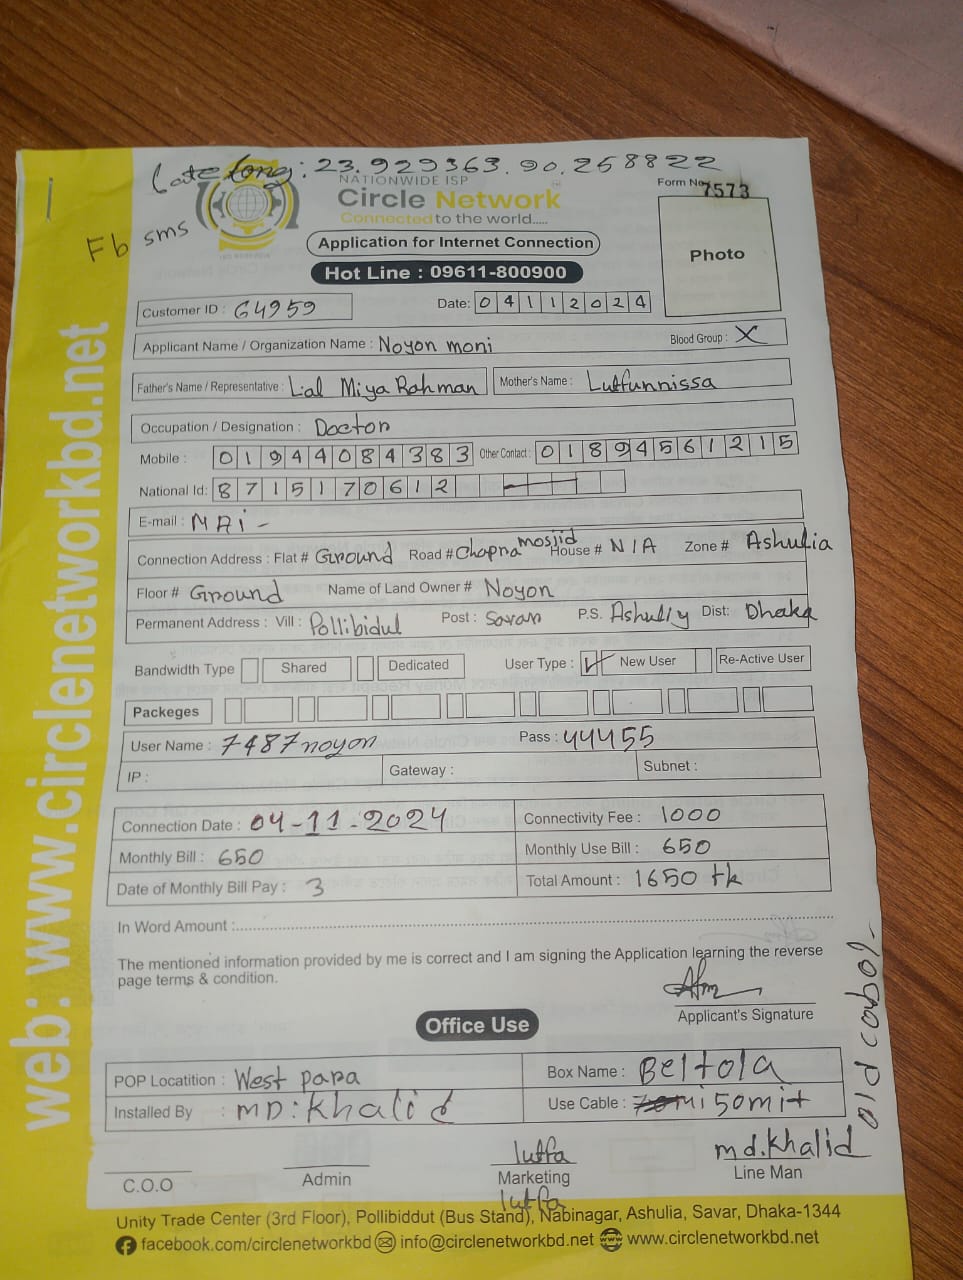 Late long: 23.929363.90.258822
NATIONWIDE ISP
Circle Network
Connected to the world.....
Form No 7573
Fb sms
Application for Internet Connection
Photo
Hot Line : 09611-800900
Customer ID : 64959 Date: 04112024
Applicant Name / Organization Name : Noyon moni Blood Group : X
Father's Name / Representative : Lal Miya Rahman Mother's Name : Lutfunnissa
Occupation / Designation : Doctor
Mobile : 01944084383 Other Contact : 01894561215
National Id: 8715170612
E-mail : MAi -
Connection Address : Flat # Ground Road # Chapna mosjid House # N/A Zone # Ashulia
Floor # Ground Name of Land Owner # Noyon
Permanent Address : Vill : Pollibidut Post : Savar P.S. Ashully Dist: Dhaka
Bandwidth Type Shared Dedicated User Type : New User Re-Active User
Packeges
User Name : 7487noyon Pass : 44455
IP : Gateway : Subnet :
Connection Date : 04-11-2024 Connectivity Fee : 1000
Monthly Bill : 650 Monthly Use Bill : 650
Date of Monthly Bill Pay : 3 Total Amount : 1650 tk
In Word Amount :
The mentioned information provided by me is correct and I am signing the Application learning the reverse
page terms & condition.
Applicant's Signature
Office Use
POP Locatition : West para Box Name : Beltola
Installed By : MD: Khalid Use Cable : mi 50mit
old cabol
C.O.O
Admin
lutfa
Marketing
lutfa
md.khalid
Line Man
Unity Trade Center (3rd Floor), Pollibiddut (Bus Stand), Nabinagar, Ashulia, Savar, Dhaka-1344
facebook.com/circlenetworkbd info@circlenetworkbd.net www.circlenetworkbd.net
web: www.circlenetworkbd.net